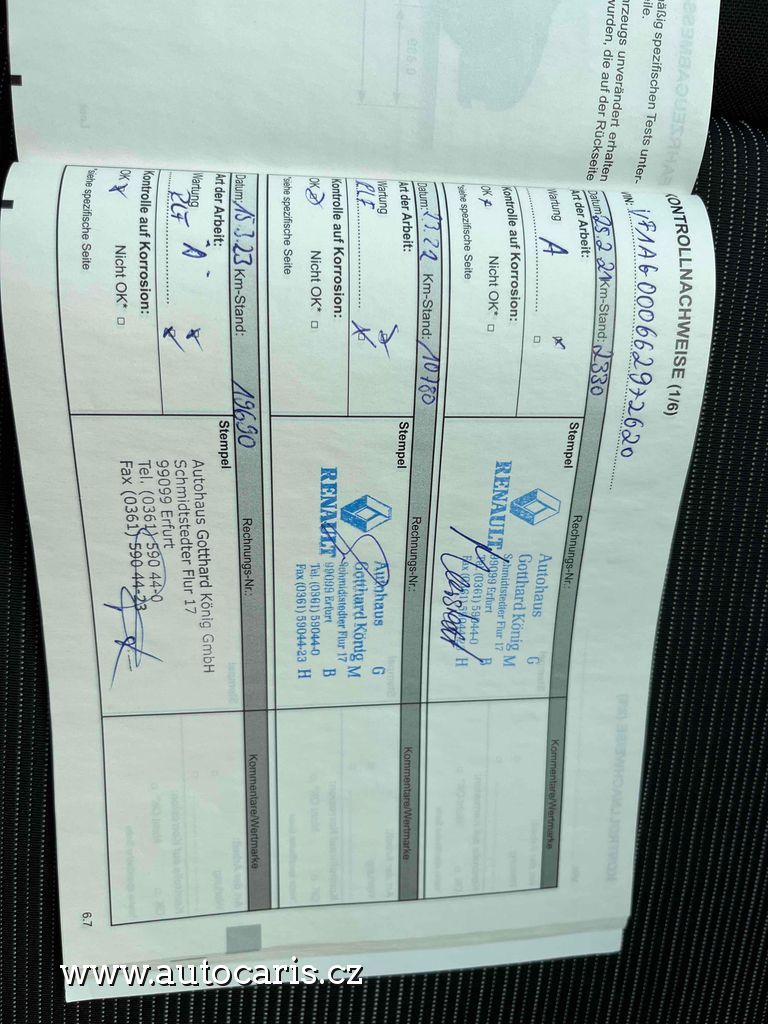 mäßig spezifischen Tests unter-
rzeugs unverändert erhalten
wurden, die auf der Rückseite
KONTROLLNACHWEISE (1/6)
VIN:
Datum: 25.2.21 Km-Stand: 2330 Rechnungs-Nr.:
Art der Arbeit: Stempel Kommentare/Wertmarke
Wartung A
Kontrolle auf Korrosion:
OK Nicht OK* □
*siehe spezifische Seite
RENAULT
Autohaus G
Gotthard König M
Schmidtstedter Flur 17
99099 Erfurt B
Tel. (0361) 59044-0
Fax (0361) 59044-23 H
Datum: Km-Stand: 10780 Rechnungs-Nr.:
Art der Arbeit: Stempel Kommentare/Wertmarke
Wartung
Kontrolle auf Korrosion:
OK Nicht OK* □
*siehe spezifische Seite
RENAULT
Autohaus G
Gotthard König M
Schmidtstedter Flur 17
99099 Erfurt B
Tel. (0361) 59044-0
Fax (0361) 59044-23 H
Datum: 15.3.23 Km-Stand: 19690 Rechnungs-Nr.:
Art der Arbeit: Stempel Kommentare/Wertmarke
Wartung
Kontrolle auf Korrosion:
OK Nicht OK* □
*siehe spezifische Seite
Autohaus Gotthard König GmbH
Schmidtstedter Flur 17
99099 Erfurt
Tel. (0361) 590 44-0
Fax (0361) 590 44-23
6.7
www.autocaris.cz